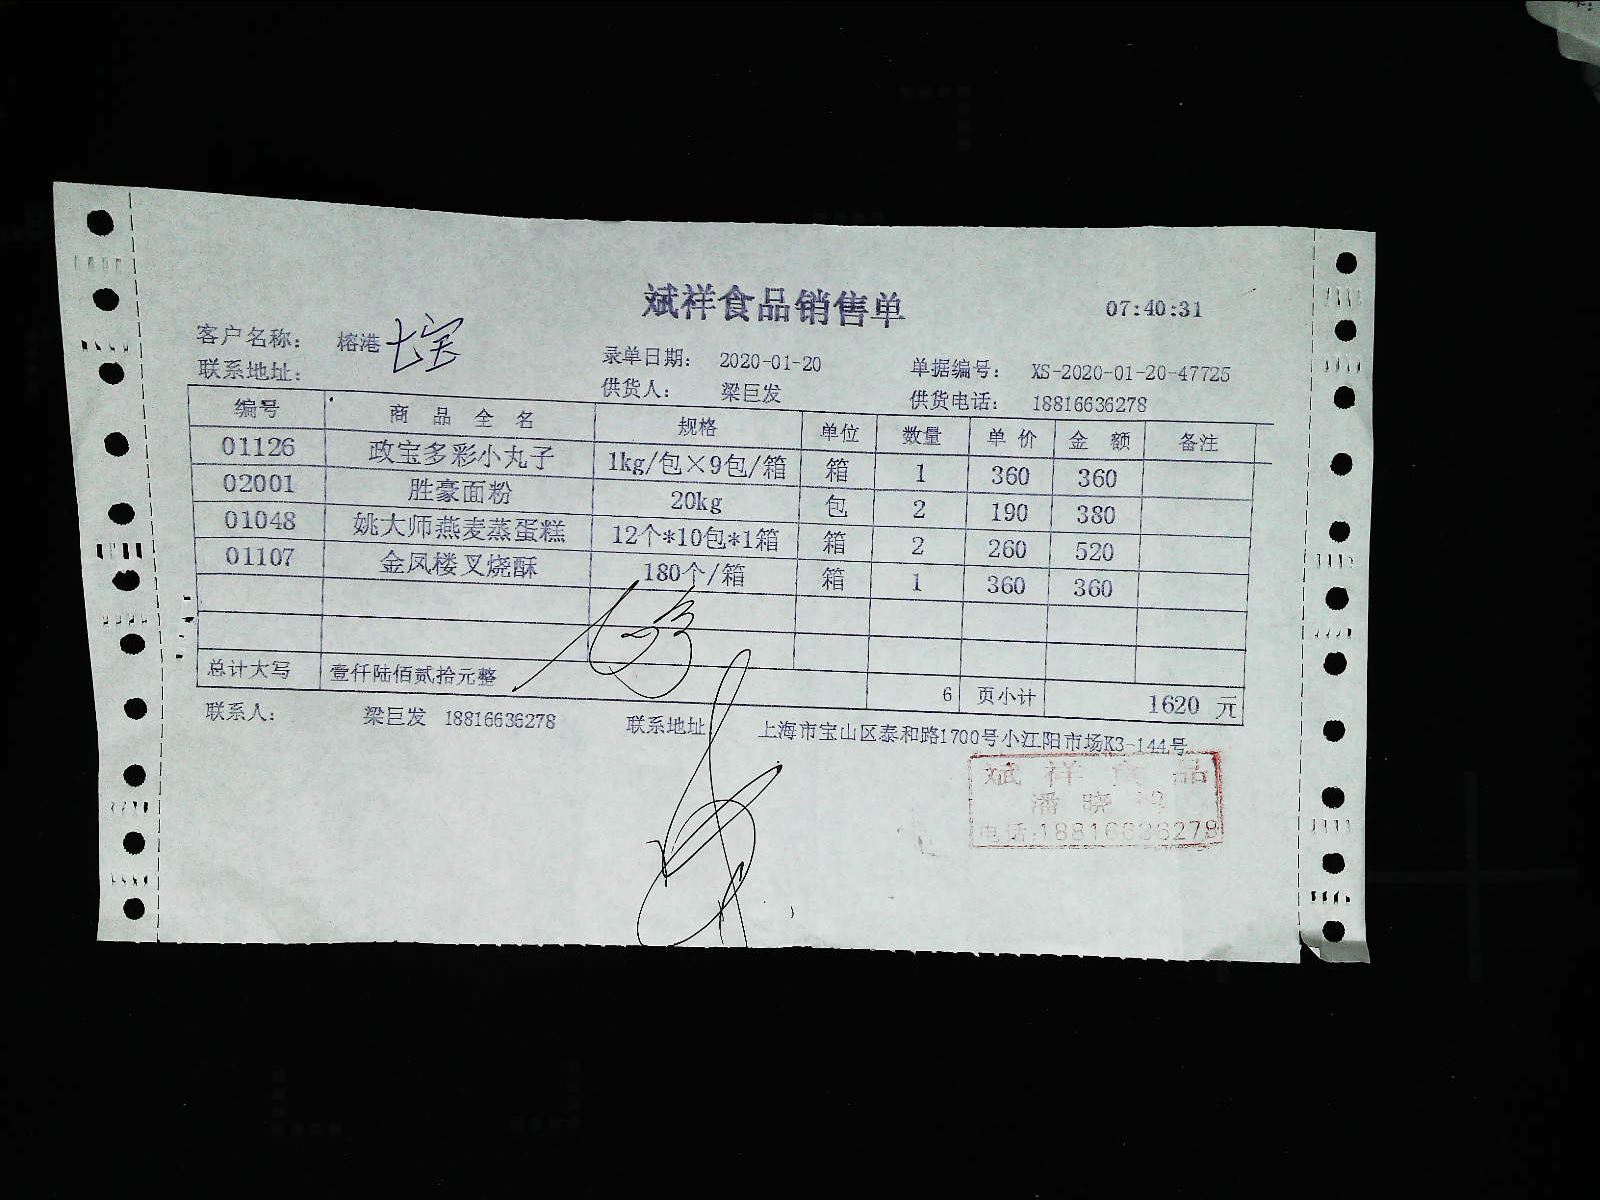 斌祥食品销售单 07:40:31
客户名称: 榕港 七宝 录单日期: 2020-01-20 单据编号: XS-2020-01-20-47725
联系地址: 供货人: 梁巨发 供货电话: 18816636278
编号 商品全名 规格 单位 数量 单价 金额 备注
01126 政宝多彩小丸子 1kg/包×9包/箱 箱 1 360 360
02001 胜豪面粉 20kg 包 2 190 380
01048 姚大师燕麦蒸蛋糕 12个*10包*1箱 箱 2 260 520
01107 金凤楼叉烧酥 180个/箱 箱 1 360 360
总计大写 壹仟陆佰贰拾元整 6 页小计 1620 元
联系人: 梁巨发 18816636278 联系地址 上海市宝山区泰和路1700号小江阳市场K3-144号
斌祥食品
潘晓
电话:18816636278